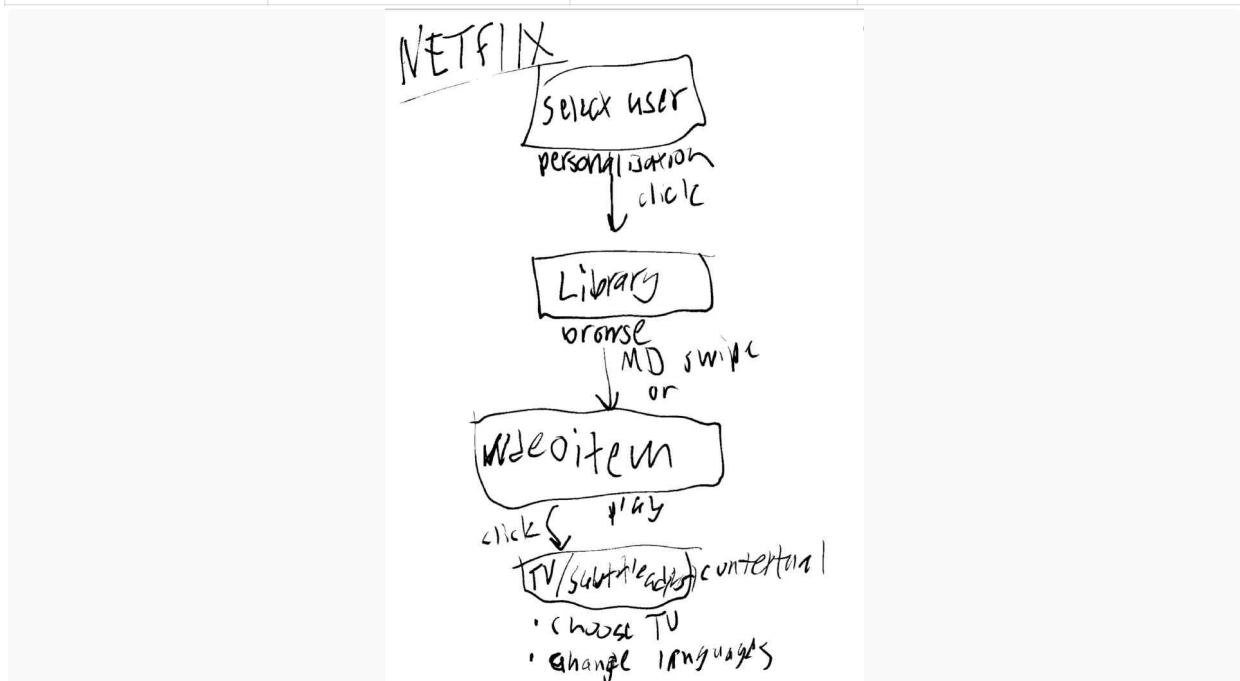 NETFLIX
select user
personalisation
click
Library
browse
MD swipe
or
videoitem
play
click
TV/subtitle adjust contextual
• choose TV
• change languages